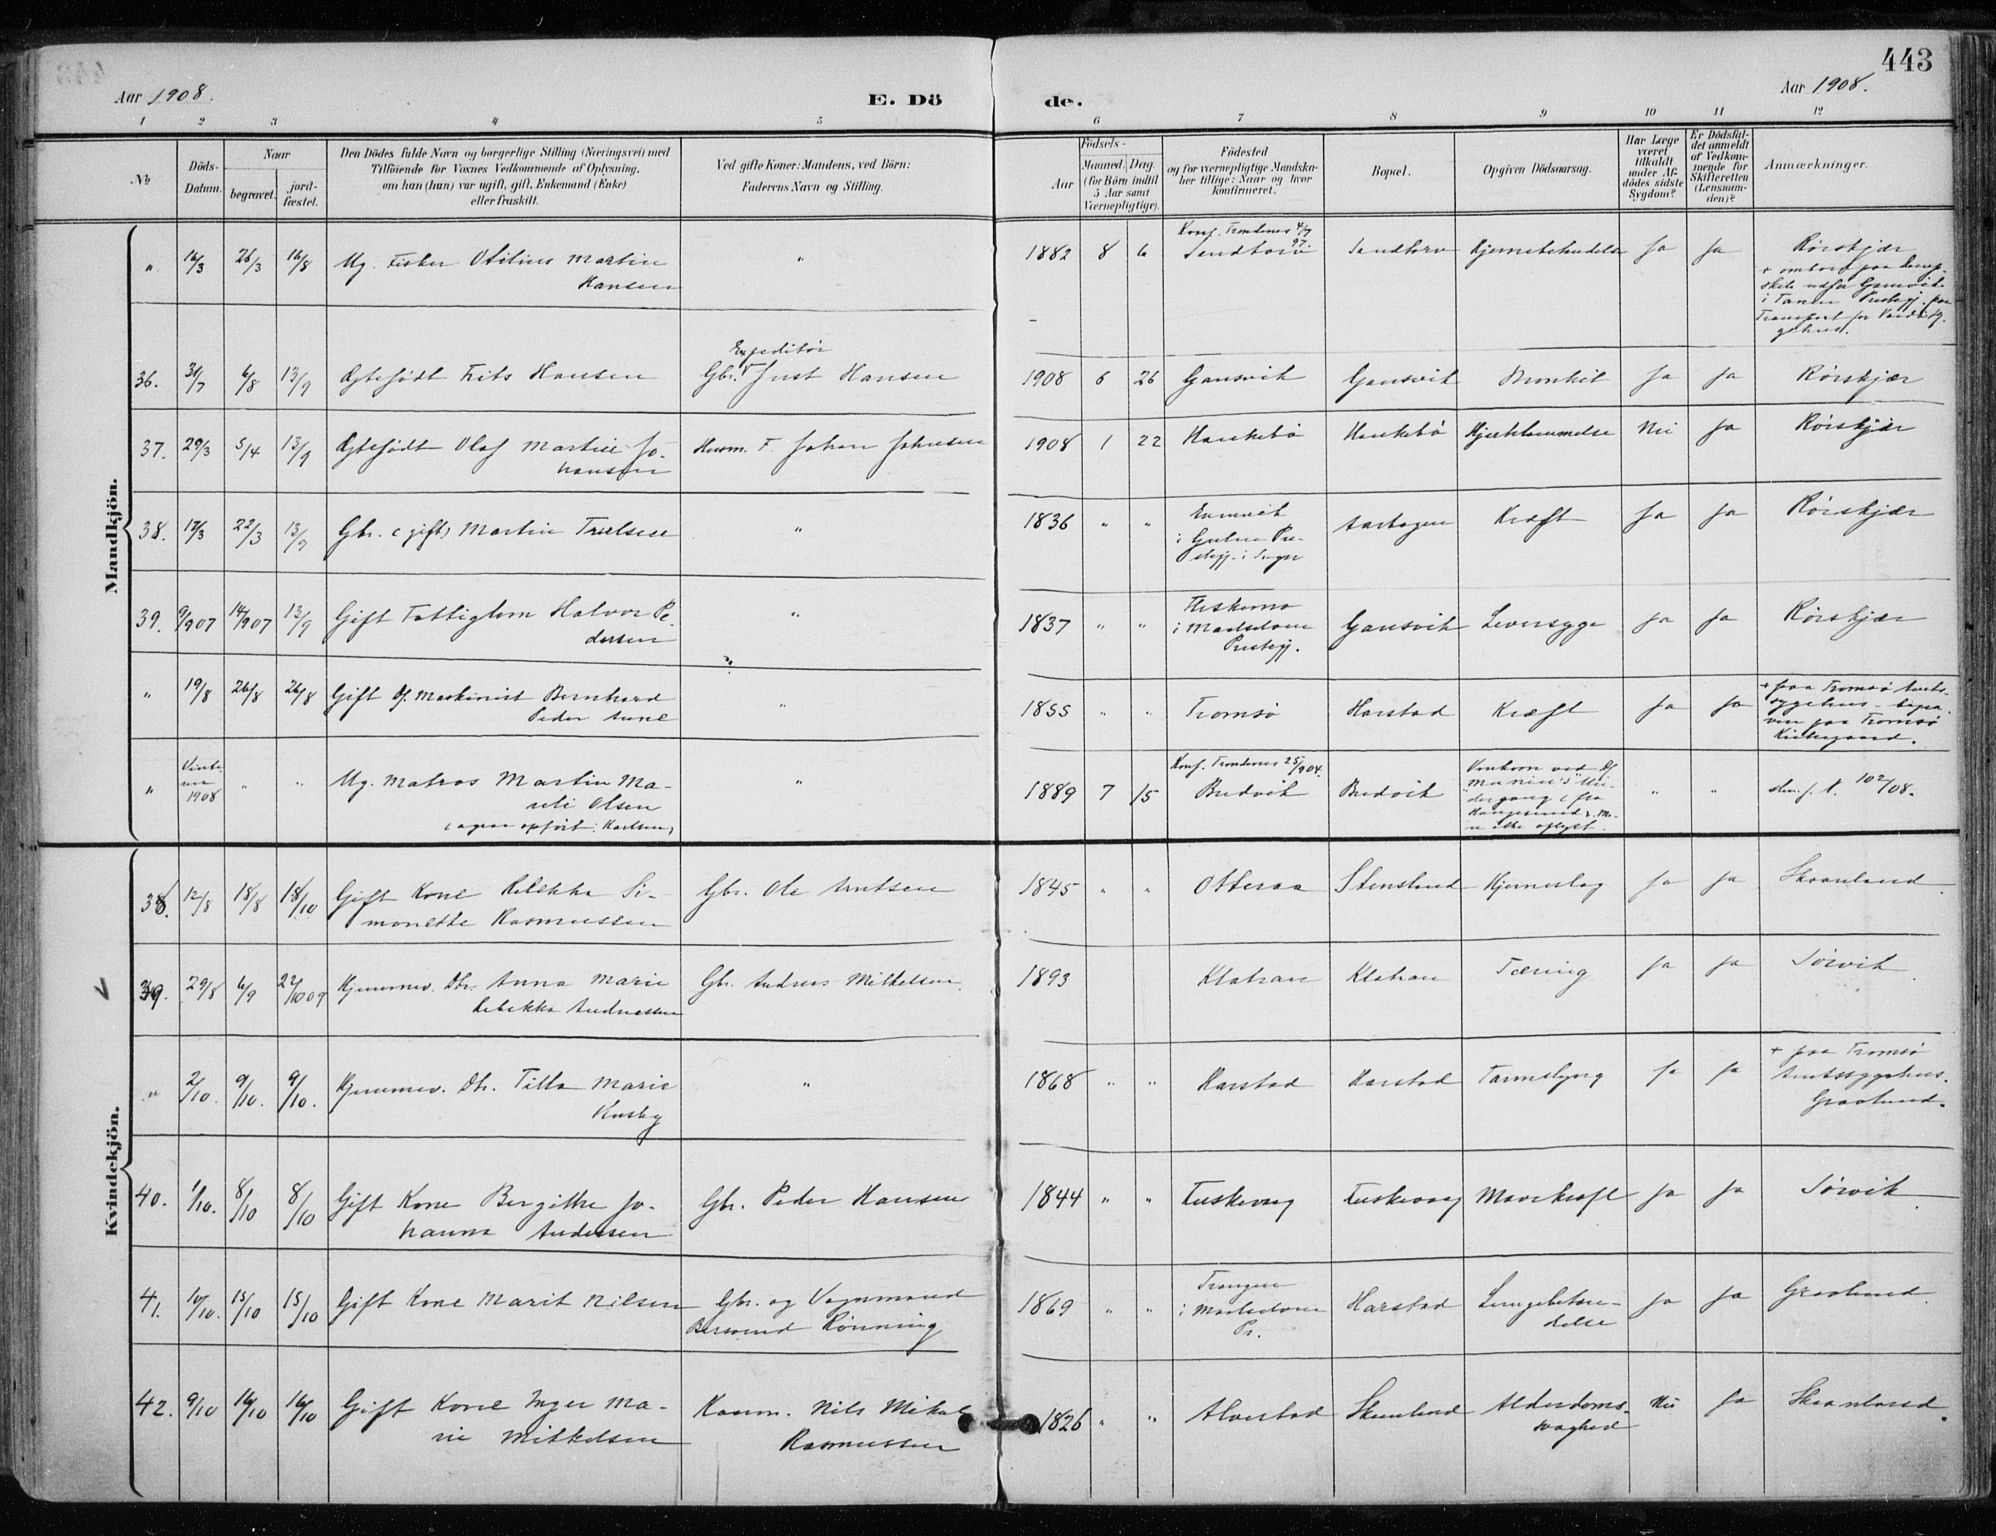 443
Aar 1908.
E. Dö
de.
Aar 1908.
1 2 3 4 5 6 7 8 9 10 11 12
No
Döds-
Datum.
Naar
begravet.
jord-
fæstet.
Den Dödes fulde Navn og borgerlige Stilling (Næringsvei) med
Tilföiende for Voxnes Vedkommende af Oplysning,
om han (hun) var ugift, gift, Enkemand (Enke)
eller fraskilt.
Ved gifte Koner: Mandens, ved Börn:
Faderens Navn og Stilling.
Födsels-
Aar
Maaned.
Dag.
(for Börn indtil
5 Aar samt
Værnepligtige).
Födested
og for værnepligtige Mandska-
ber tillige: Naar og hvor
konfirmeret.
Bopæl.
Opgiven Dödsaarsag.
Har Læge
været
tilkaldt
under Af-
dödes sidste
Sygdom?
Er Dödsfal-
det anmeldt
af Vedkom-
mende for
Skifteretten
(Lensman-
den)?
Anmærkninger.
Mandkjön.
" 16/3 26/3 16/8 Ug. Fisker Martin
Hansen
"
Konf. Trondenes 4/7
97.
1882 8 6 Sandtorv Sandtorv Hjernebetændelse Ja Ja Rørskjær
+ ombord paa
i Tanen Prestegj. paa
Transport for
36. 31/7 6/8 13/9 Ægtefødt Frits Hansen
Expeditør
Gbr. Just Hansen
1908 6 26 Gansvik Gansvik Bronkit Ja Ja Rørskjær
37. 29/3 5/4 13/9 Ægtefødt Olaf Martin Jo-
hansen
Husm. F. Johan Johnsen
1908 1 22 Nei Ja Rørskjær
38. 17/3 22/3 13/9 Gbr. (gift) Martin Truelsen
"
1836 " "
i Gulen Pre-
stegj. i Sogn
Kræft Ja Ja Rørskjær
39. 9/907 14/907 13/9 Gift Fattiglem Halvor Pe-
dersen
"
1837 " "
i Maalselven
Prestegj.
Gansvik Leversyge Ja Ja Rørskjær
" 19/8 26/8 26/8 Gift f. Maskinist Bernhard
Peder Aune
"
1855 " " Tromsø Harstad Kræft Ja Ja
+ paa Tromsø Amts-
sygehus.
paa Tromsø
Kirkegaard.
"
1908
" " Ug. Matros Martin Ma-
Olsen
(ogsaa opført: Karlsen)
"
Konf. Trondenes 25/904.
1889 7 15 Bredvik Bredvik
Omkom ved
"
"
102/08.
Kvindekjön.
38. 12/8 18/8 18/10 Gift Kone Rebekka Si-
monette Rasmussen
Gbr. Ole Arntsen
1845 " " Otteraa Stensland Hjerneslag Ja Ja Skaanland
39. 29/8 6/9 22/1009 Hjemmev. Dtr. Anna Marie
Rebekka Andreassen
Gbr. Andreas Mikkelsen
1893 Klatran Klatran Tæring Ja Ja Sørvik
" 2/10. 9/10. 9/10. Hjemmev. Dtr. Tilla Marie
"
1868 " " Harstad Harstad Tarmslyng Ja Ja
+ paa Tromsø
Amtssygehus.
Graalund.
40. 1/10. 8/10 8/10 Gift Kone Bergitte Jo-
hanna Andersen
Gbr. Peder Hansen
1844 " " Fuskevaag Fuskevaag Mavekræft Ja Ja Sørvik
41. 10/10. 15/10 15/10 Gift Kone Marit Nilsen
Gbr. og Vognmand
Bersvend Rönning
1869 " "
i Maalselven
Pr.
Harstad Lungebetæn-
delse
Ja Ja Graalund
42. 9/10 16/10 16/10 Gift Kone Inger Ma-
rie Mikkelsen
Nils Mikal
Rasmussen
1826 " " Skaanland Alderdoms-
svaghed
Nei Ja Skaanland.